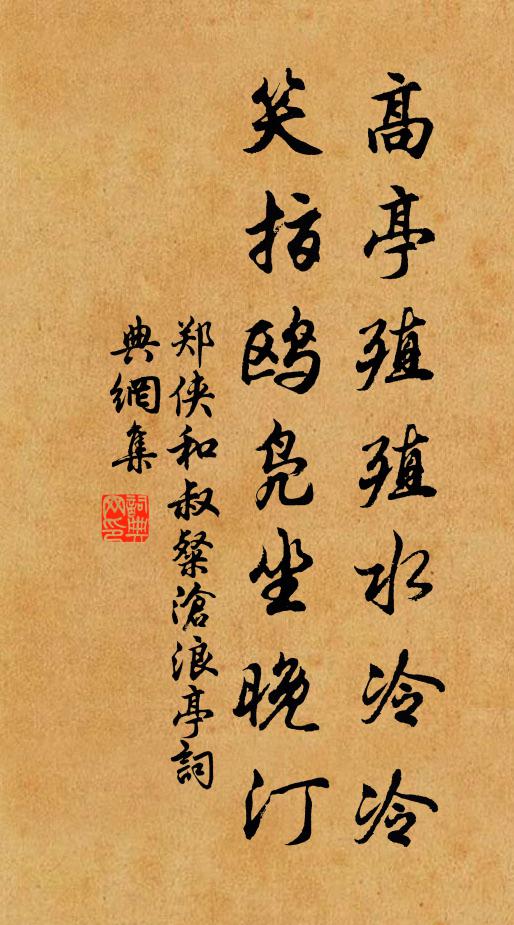 高亭殖殖水冷冷
笑指鸥凫坐晚汀
郑侠和叔粲滄浪亭詞
典網集
詞典網印